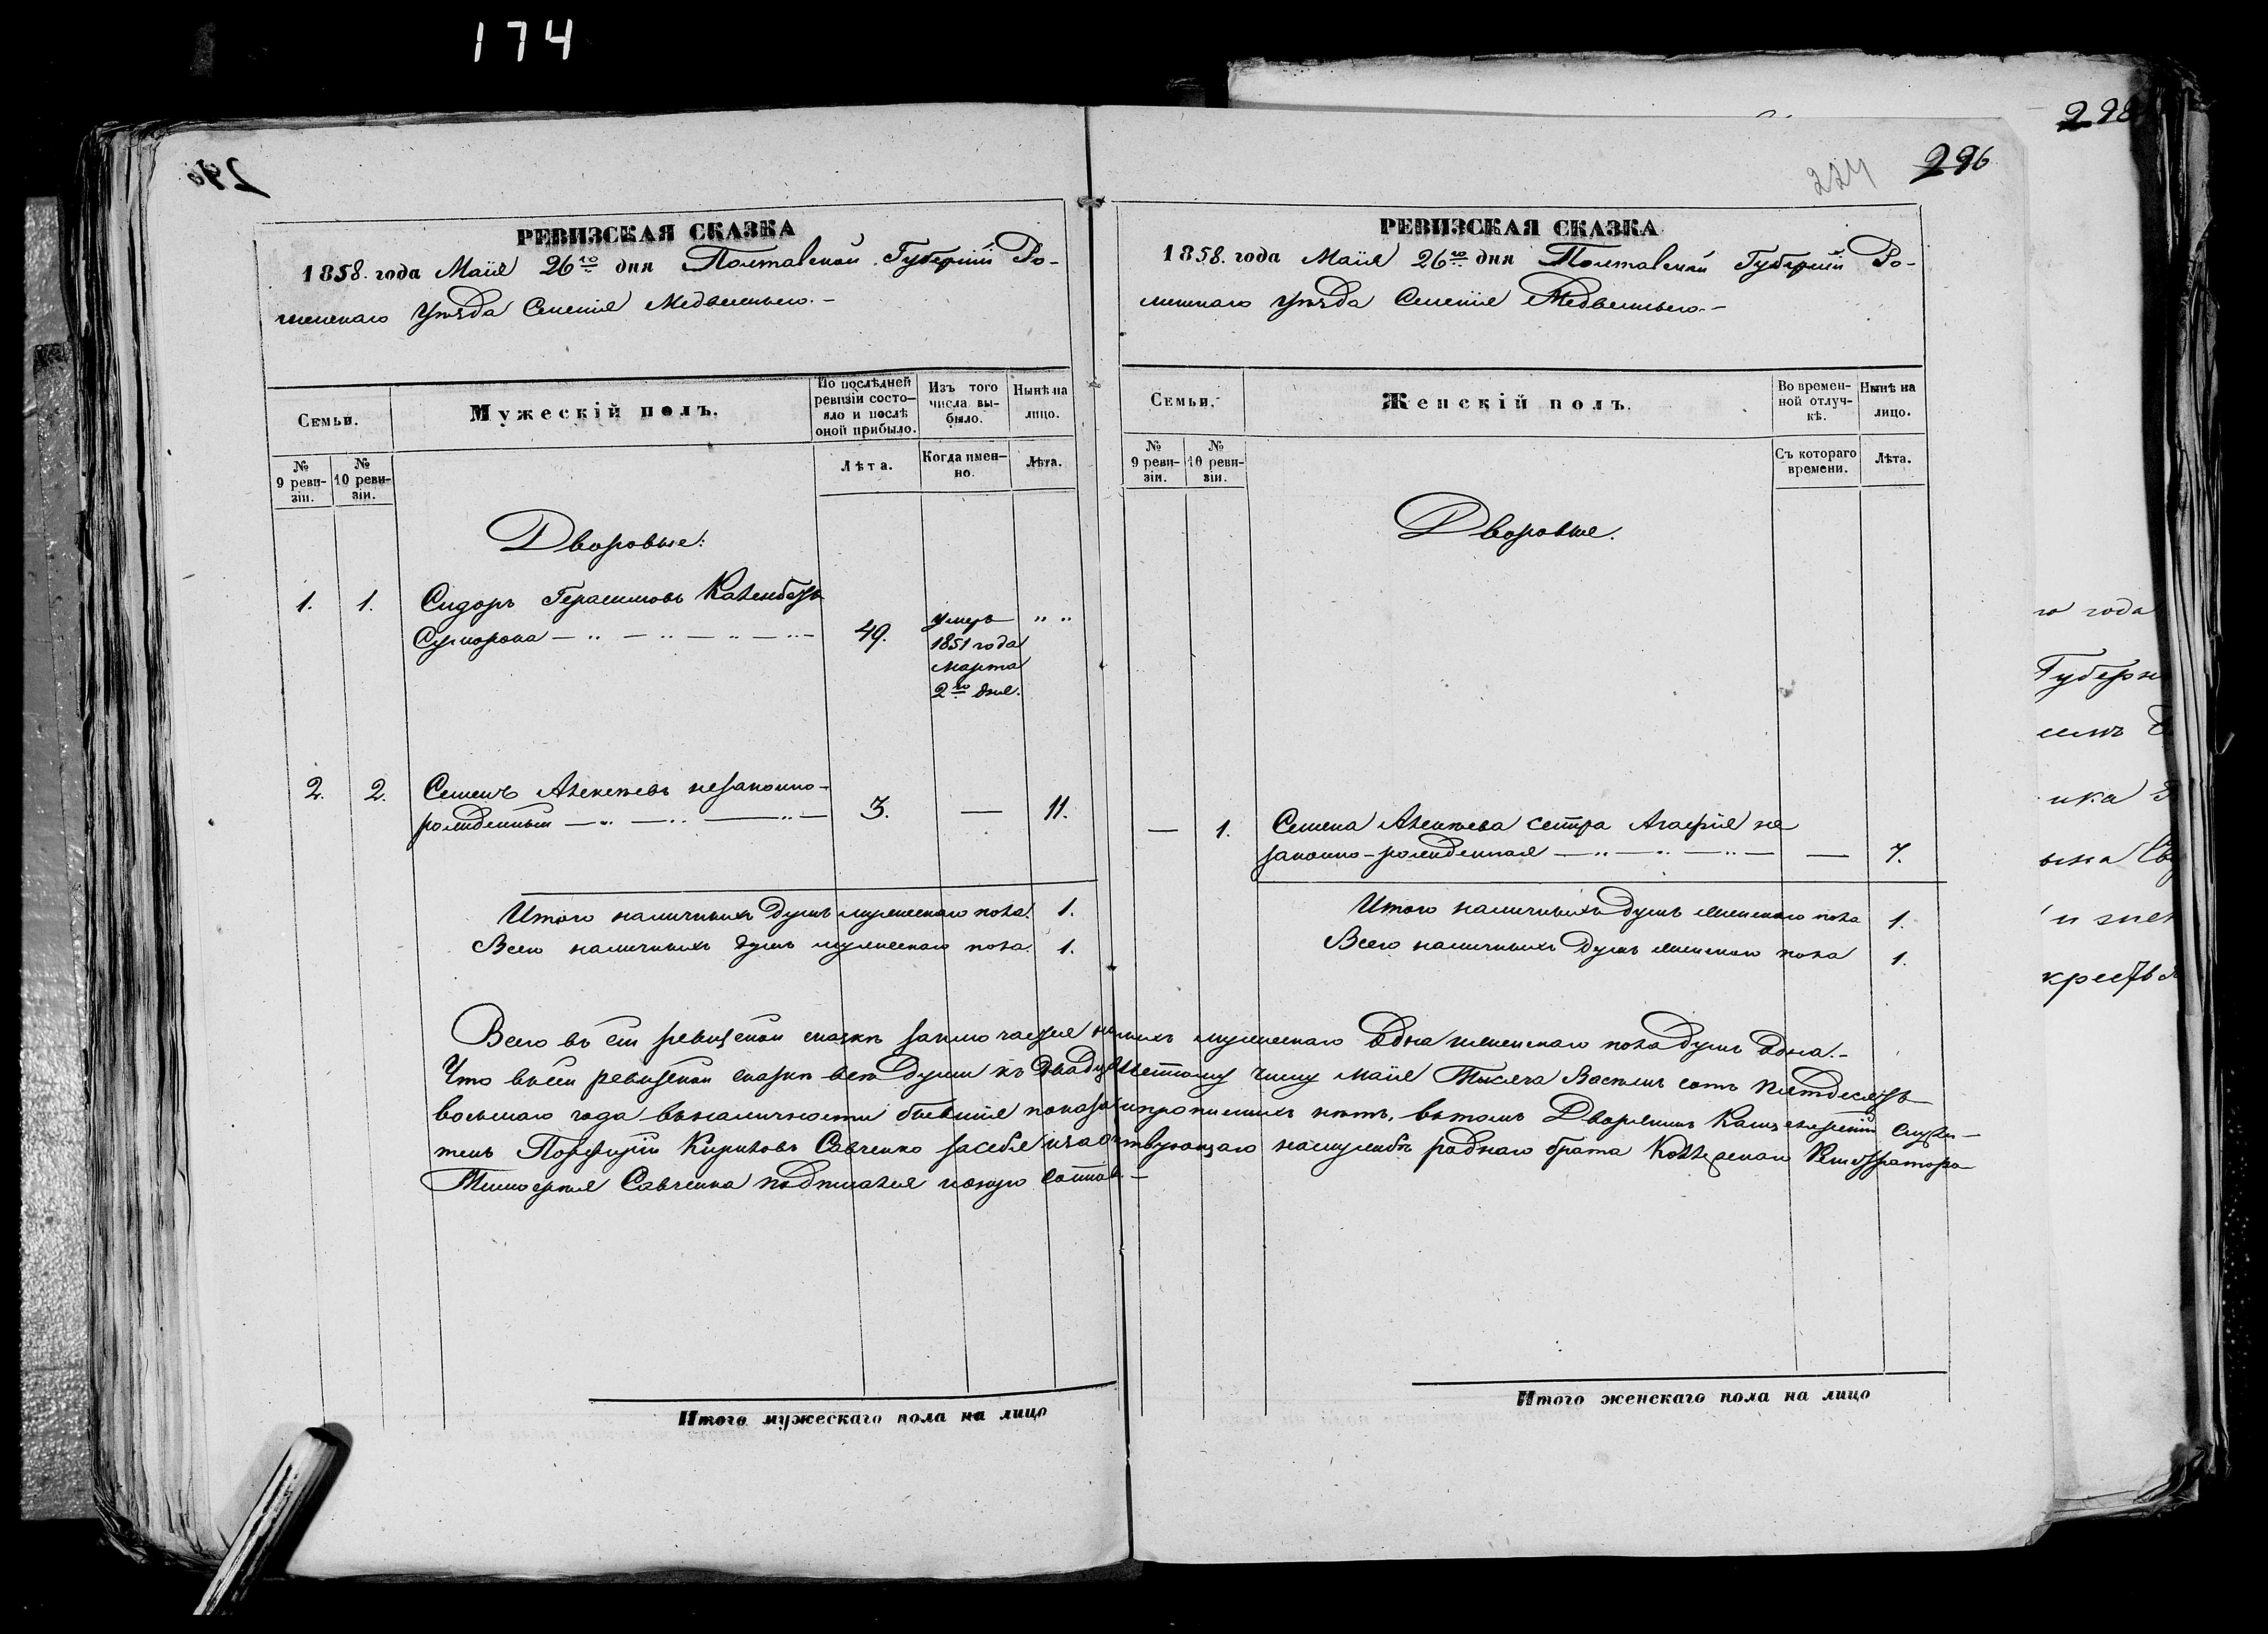 174
298
296
224
РЕВИЗСКАЯ СКАЗКА
1858. года Маія 26го дня Полтавской Губерніи Ро-
менскаго уѣзда Селенія Медвежьего.-
Семьи.
Мужескій полъ.
По послѣдней ревизіи состо-яло и послѣ оной прибыло.
Изъ того числа вы-было.
Нынѣ на лицо.
№ 9 реви-зіи.
№ 10 реви-зіи.
Лѣта.
Когда имен-но.
Лѣта.
Дворовые:
1. 1. Сидоръ Герасимовъ
49. умеръ 1851 года марта 2го дня. „ „
2. 2. Семенъ Алексѣевъ незаконно-
рожденный 3. — 11.
Итого наличныхъ душъ мужескаго пола. 1.
Всего наличныхъ душъ мужескаго пола. 1.
РЕВИЗСКАЯ СКАЗКА
1858. года Маія 26го дня Полтавской Губерніи Ро-
менскаго уѣзда Селенія Медвежьего.-
Семьи.
Женскій полъ.
Во времен-ной отлуч-кѣ.
Нынѣ на лицо.
№ 9 реви-зіи.
№ 10 реви-зіи.
Съ котораго времени.
Лѣта.
Дворовые.
— 1. Семена Алексѣева сестра Агафія не
законно-рожденная — 7.
Итого наличныхъ душъ женскаго пола 1.
Всего наличныхъ душъ женскаго пола 1.
Всего въ сей ревизской сказкѣ заключается мужескаго одна женскаго пола душъ одна.-
Что въ сей ревизской сказкѣ всѣ души къ двадцать шестому числу маія Тысяча Восемь сотъ пятдесятъ
восьмаго года въ наличности бывшія показаны и прописныхъ нѣтъ, въ томъ Дворянинъ Канцелярскій служи-
тель Порфирій Кириловъ Савченко за себя и роднаго брата Коллежскаго Регистратора
Тимофея Савченка подписался
Итого мужескаго пола на лицо
Итого женскаго пола на лицо
го года
Губерн